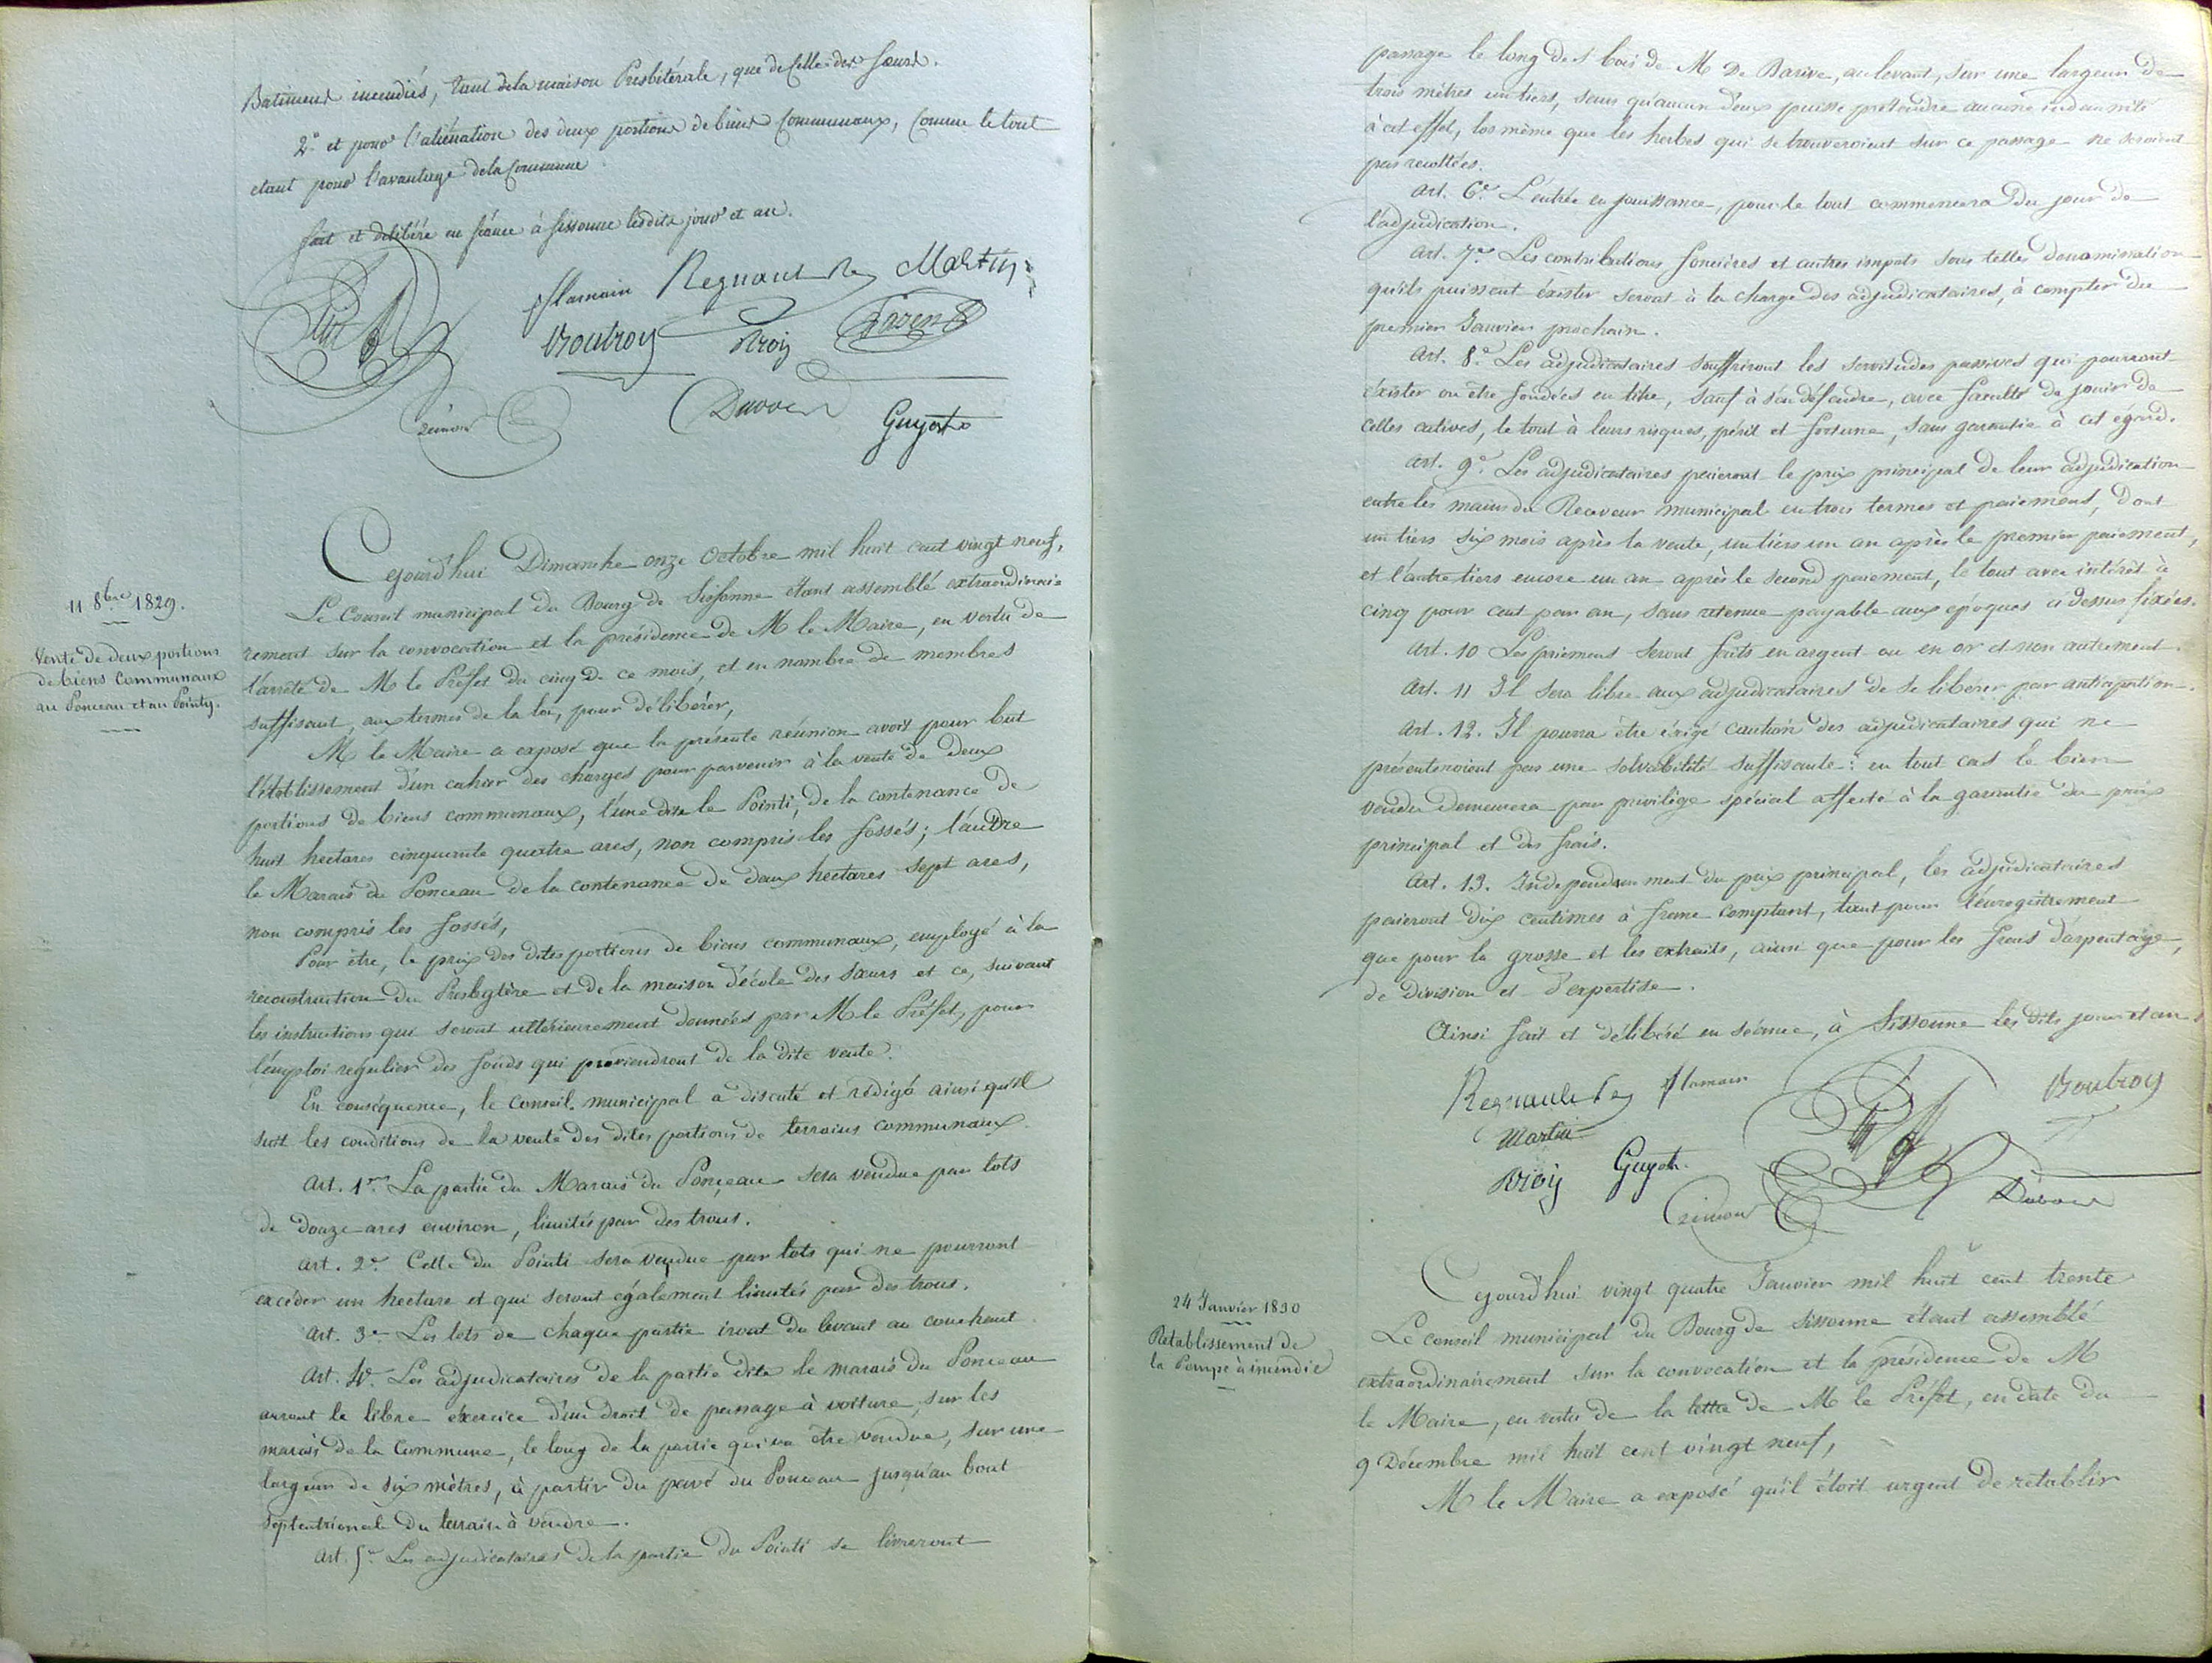 Batimens incendiés, tant de la maison Presbitérale, que de Celle des Sœurs.
2.° et pour l'aliénation des deux portions de biens Communaux, Comme le tout
etant pour l'avantage de la Commune
fait et délibéré en séance à Sissonne lesdits jour et an.
flamain Regnault Martin
Boutroy Broij
Guyot
Cejourd'hui Dimanche onze Octobre mil huit cent vingt neuf,
11 8bre 1829.
Vente de deux portions
de biens Communaux
au Ponceau et au Pointy.
Le Conseil municipal du Bourg de Sissonne étant assemblé extraordinai-
rement sur la convocation et la présidence de M le Maire, en vertu de
l'arrêté de M le Préfet du cinq de ce mois, et en nombre de membres
suffisant, aux termes de la loi, pour délibérer,
M le Maire a exposé que la présente réunion avoit pour but
l'établissement d'un cahier des charges pour parvenir à la vente de deux
portions de biens communaux, l'une dite le Pointi, de la contenance de
huit hectares cinquante quatre ares, non compris les fossés; l'autre
le Marais du Ponceau de la contenance de deux hectares sept ares,
non compris les fossés,
Pour être, le prix des dites portions de biens communaux, employé à la
reconstruction du Presbytère et de la maison d'école des sœurs et ce, suivant
les instructions qui seront ultérieurement données par M le Préfet, pour
l'emploi regulier des fonds qui proviendront de la dite vente.
En conséquence, le Conseil municipal a discuté et rédigé ainsi qu'il
suit les conditions de la vente des dites portions de terrains communaux.
Art. 1er. La partie du Marais du Ponçeau sera vendue par lots
de douze ares environ, limités par des trous.
Art. 2e. Celle du Pointi sera vendue par lots qui ne pourront
excéder un hectare et qui seront également limités par des trous.
Art. 3e. Les lots de chaque partie iront du levant au couchant
Art. 4e. Les adjudicataires de la partie dite le marais du Ponceau
auront le libre éxercice d'un droit de passage à voiture, sur les
marais de la Commune, le long de la partie qui va être vendue, sur une
largeur de six mètres, à partir du pavé du Ponceau jusqu'au bout
septentrional du terrain à vendre.
Art. 5e. Les adjudicataires de la partie du Pointi se livreront
passage le long des bois de M De Barive, au levant, sur une largeur de
trois mètres un tiers, sans qu'aucun d'eux puisse prétendre aucune indemnité
à cet effet, lors même que les herbes qui se trouveroient sur ce passage ne seroient
pas recoltées.
Art. 6e. L'entrée en jouissance, pour le tout commencera du jour de
l'adjudication.
Art. 7e. Les contributions foncières et autres impots sous telles dénomination
qu'ils puissent éxister seront à la charge des adjudicataires, à compter du
premier Janvier prochain.
Art. 8e. Les adjudicataires souffriront les servitudes passives qui pourront
éxister ou être fondées en titre, sauf à s'en défendre, avec faculté de jouir de
celles actives, le tout à leurs risques, péril et fortune, sans garantie à cet égard.
Art. 9e. Les adjudicataires paieront le prix principal de leur adjudication
entre les mains du Receveur municipal en trois termes et paiemens, dont
un tiers six mois après la vente, un tiers un an après le premier paiement,
et l'autre tiers encore un an après le second paiement, le tout avec intérêt à
cinq pour cent par an, sans retenue payable aux époques ci dessus fixées.
Art. 10 Les paiemens seront faits en argent ou en or et non autrement.
Art. 11 Il sera libre aux adjudicataires de se libérer par anticipation.
Art. 12. Il pourra être éxigé caution des adjudicataires qui ne
présenteroient pas une solvabilité suffisante: en tout cas le bien
vendu demeurera par privilège spécial affecté à la garantie du prix
principal et des frais.
Art. 13. Independamment du prix principal, les adjudicataires
paieront dix centimes à franc comptant, tant pour l'enregistrement
que pour la grosse et les extraits, ainsi que pour les frais d'arpentage,
de division et d'expertise.
Ainsi fait et délibéré en séance, à Sissonne les dits jour et an
Regnault flamain Boutroy
Martin
Broij Guyot
Cejourd'hui vingt quatre Janvier mil huit cent trente
24 Janvier 1830
Retablissement de
la Pompe à incendie
Le conseil municipal du Bourg de Sissonne étant assemblé
extraordinairement sur la convocation et la présidence de M
le Maire, en vertu de la lettre de M le Préfet, en date du
9 Décembre mil huit cent vingt neuf,
M le Maire a exposé qu'il étoit urgent de retablir